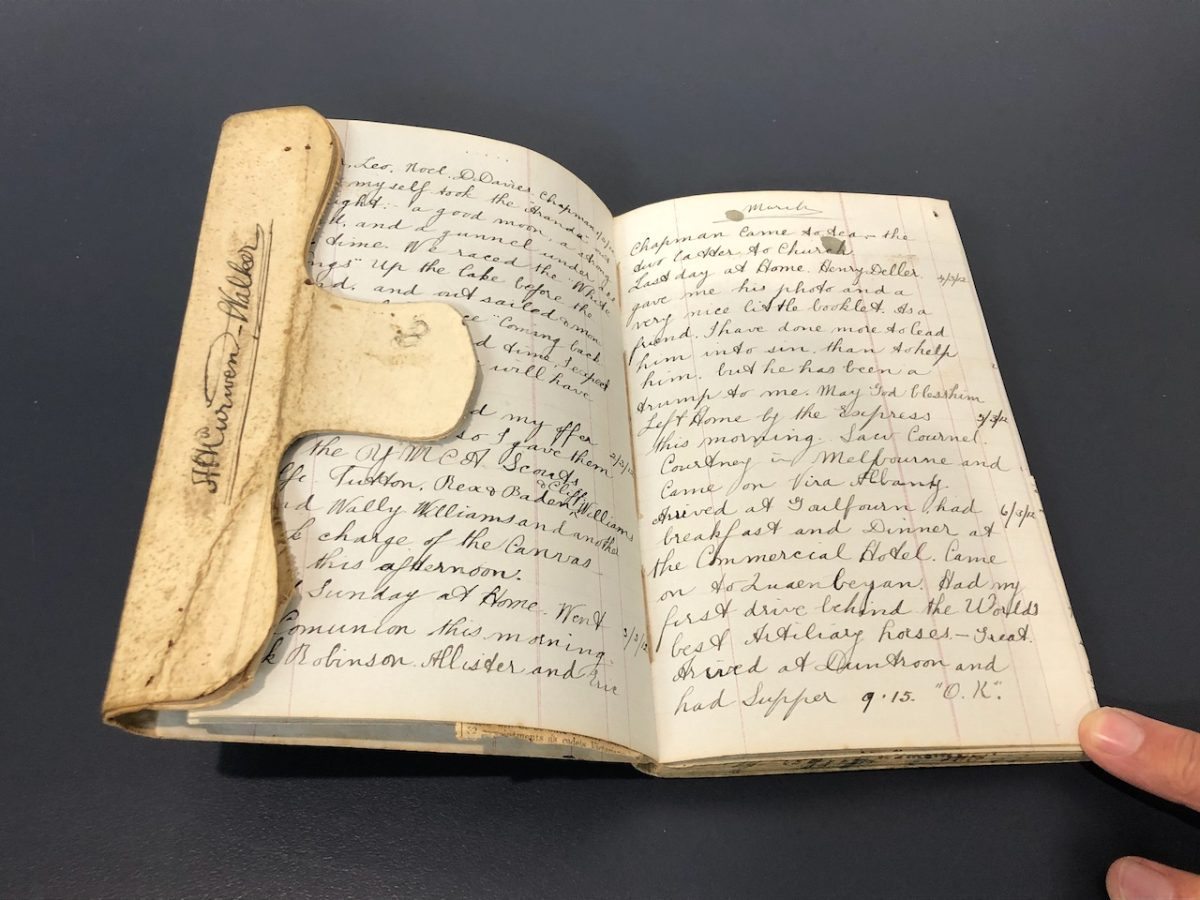 Curwen-Walker
Leo. Noel. D. Davies. Chapman
myself took the
a good moon, a strong
and a gunnel under
time. We raced the "White
ings" Up the Lake before the
and out sailed
"Coming back
time, I expect
will have
my offer
2/3/12
so I gave them
the Y M C A. Scouts
Tutton, Rex & Baden & Cliff Williams
nd Wally Williams and another
k charge of the Canvas
this afternoon.
Sunday at Home. Went
3/3/12
Comunion this morning.
k Robinson. Allister and Eric
March
Chapman came to tea, - the
two latter to Church
Last day at Home. Henry Deller
4/3/12
gave me his photo and a
very nice little booklet. As a
friend. I have done more to lead
him into sin, than to help
him, but he has been a
trump to me. May God bless him
Left Home by the Express
5/3/12
this morning. Saw Cournel
Courtney in Melbourne and
came on Vira Albany.
Arrived at Goulfourn, had
6/3/12
breakfast and Dinner at
the Commercial Hotel. Came
on to Queenbeyan. Had my
first drive behind the Worlds
best Artiliary horses - Great.
Arrived at Duntroon and
had Supper 9.15. "O.K".